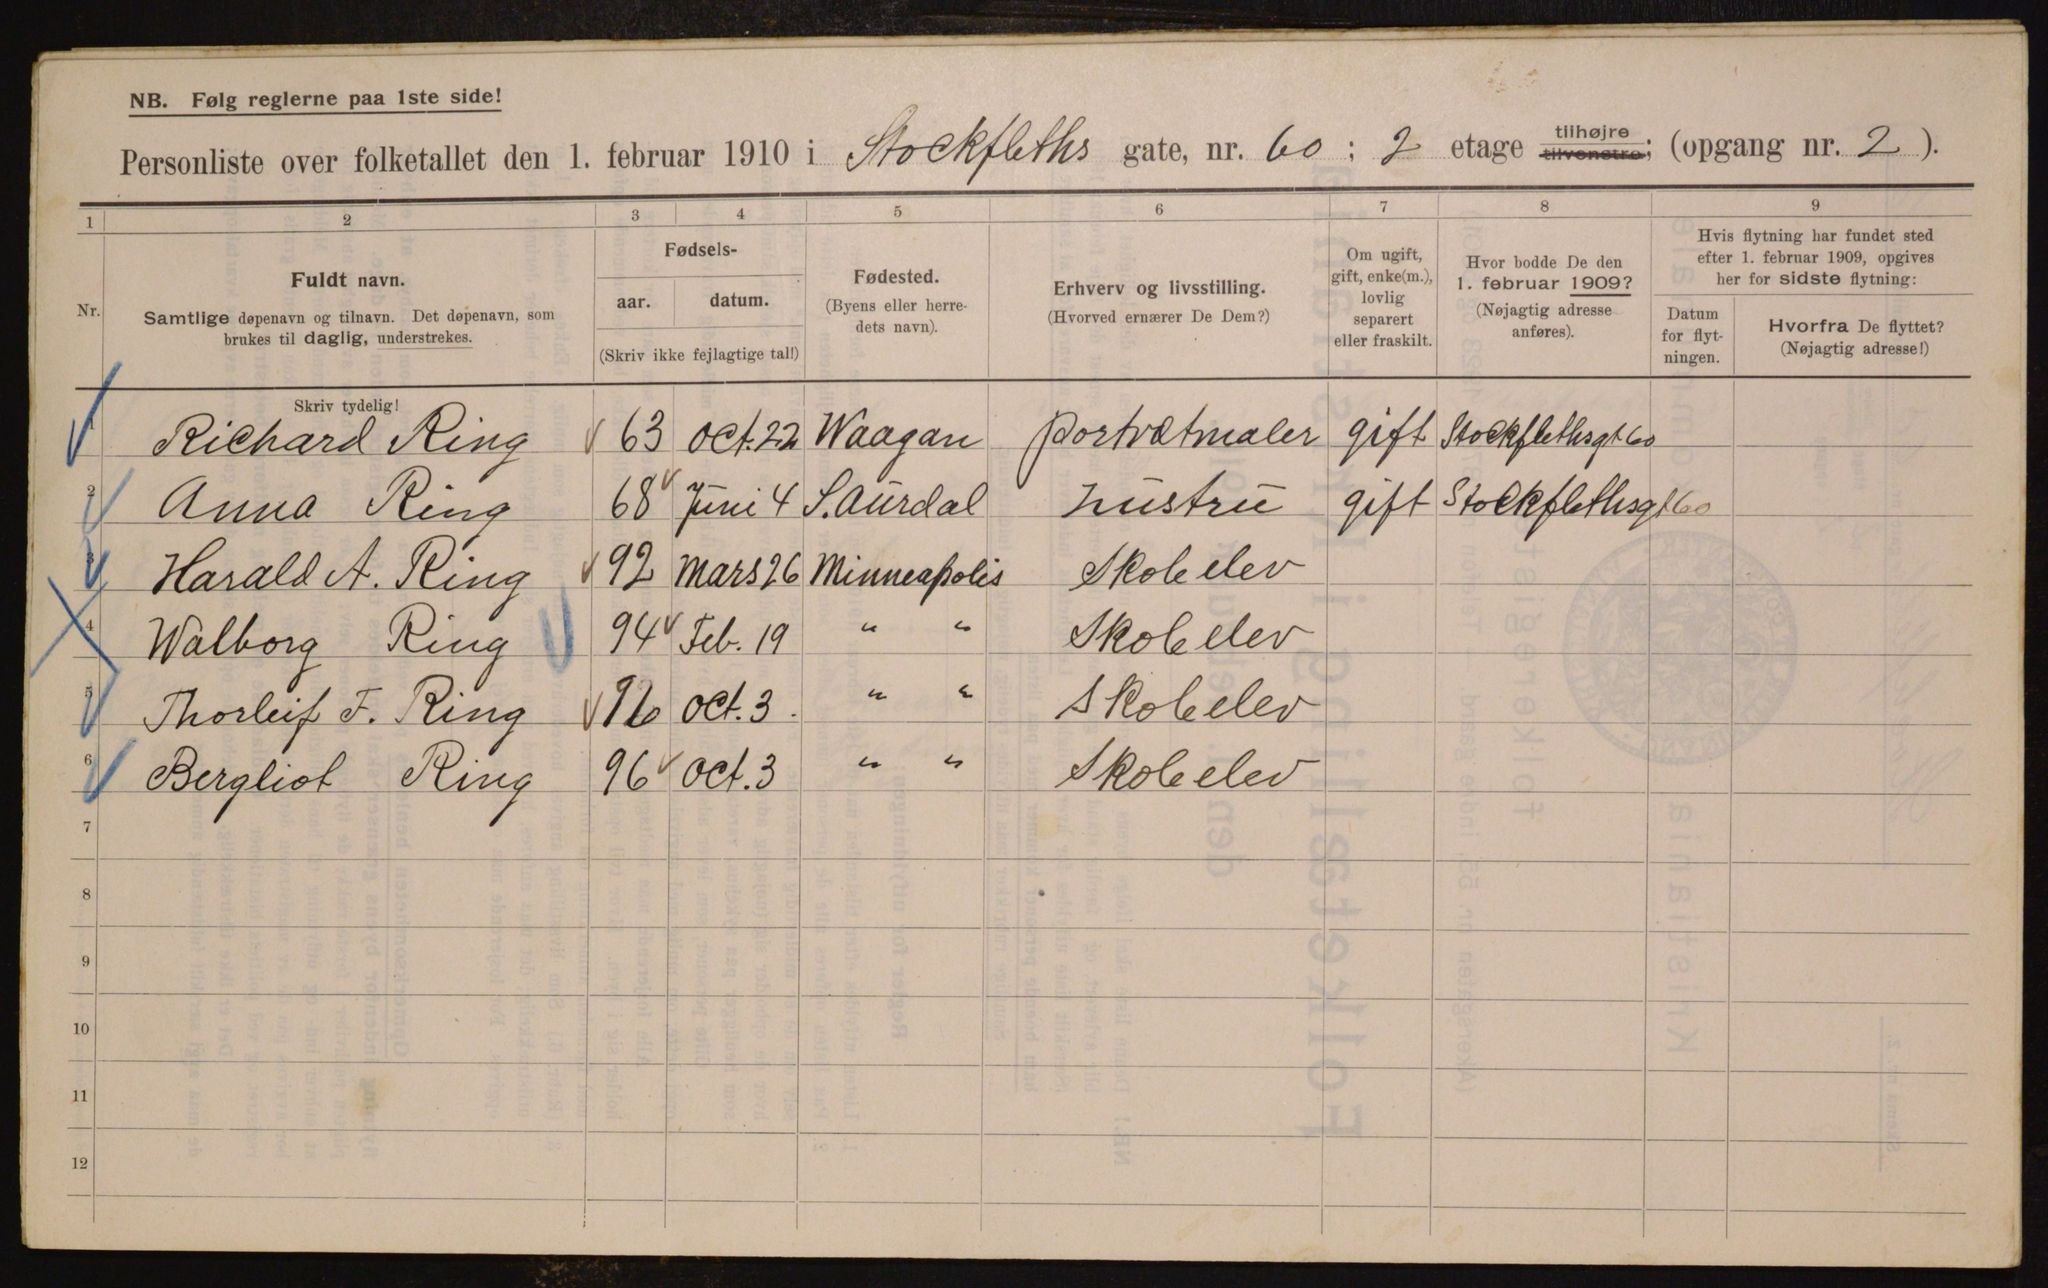 NB. Følg reglerne paa 1ste side!
Personliste over folketallet den 1. februar 1910 i Stockfleths gate, nr. 60 ; 2 etage tilhøjre tilvenstre; (opgang nr. 2 ).
1 2 3 4 5 6 7 8 9
Nr.
Fuldt navn.
Samtlige døpenavn og tilnavn. Det døpenavn, som
brukes til daglig, understrekes.
Fødsels-
aar. datum.
(Skriv ikke fejlagtige tal!)
Fødested.
(Byens eller herre-
dets navn).
Erhverv og livsstilling.
(Hvorved ernærer De Dem?)
Om ugift,
gift, enke(m.),
lovlig
separert
eller fraskilt.
Hvor bodde De den
1. februar 1909?
(Nøjagtig adresse
anføres).
Hvis flytning har fundet sted
efter 1. februar 1909, opgives
her for sidste flytning:
Datum
for flyt-
ningen.
Hvorfra De flyttet?
(Nøjagtig adresse!)
Skriv tydelig!
Richard Ring 63 Oct. 22 Waagan portrætmaler gift Stockflethsgt 60
2 Anna Ring 68 Juni 4 S. Aurdal hustru gift Stockflethsgt 60
3 Harald A. Ring 92 Mars 26 Minneapolis Skoleelev
4 Walborg Ring 94 Feb. 19 " " Skoleelev
5 Thorleif F. Ring 96 Oct. 3. " " Skoleelev
6 Bergliot Ring 96 Oct. 3 " " Skoleelev
7
8
9
10
11
12